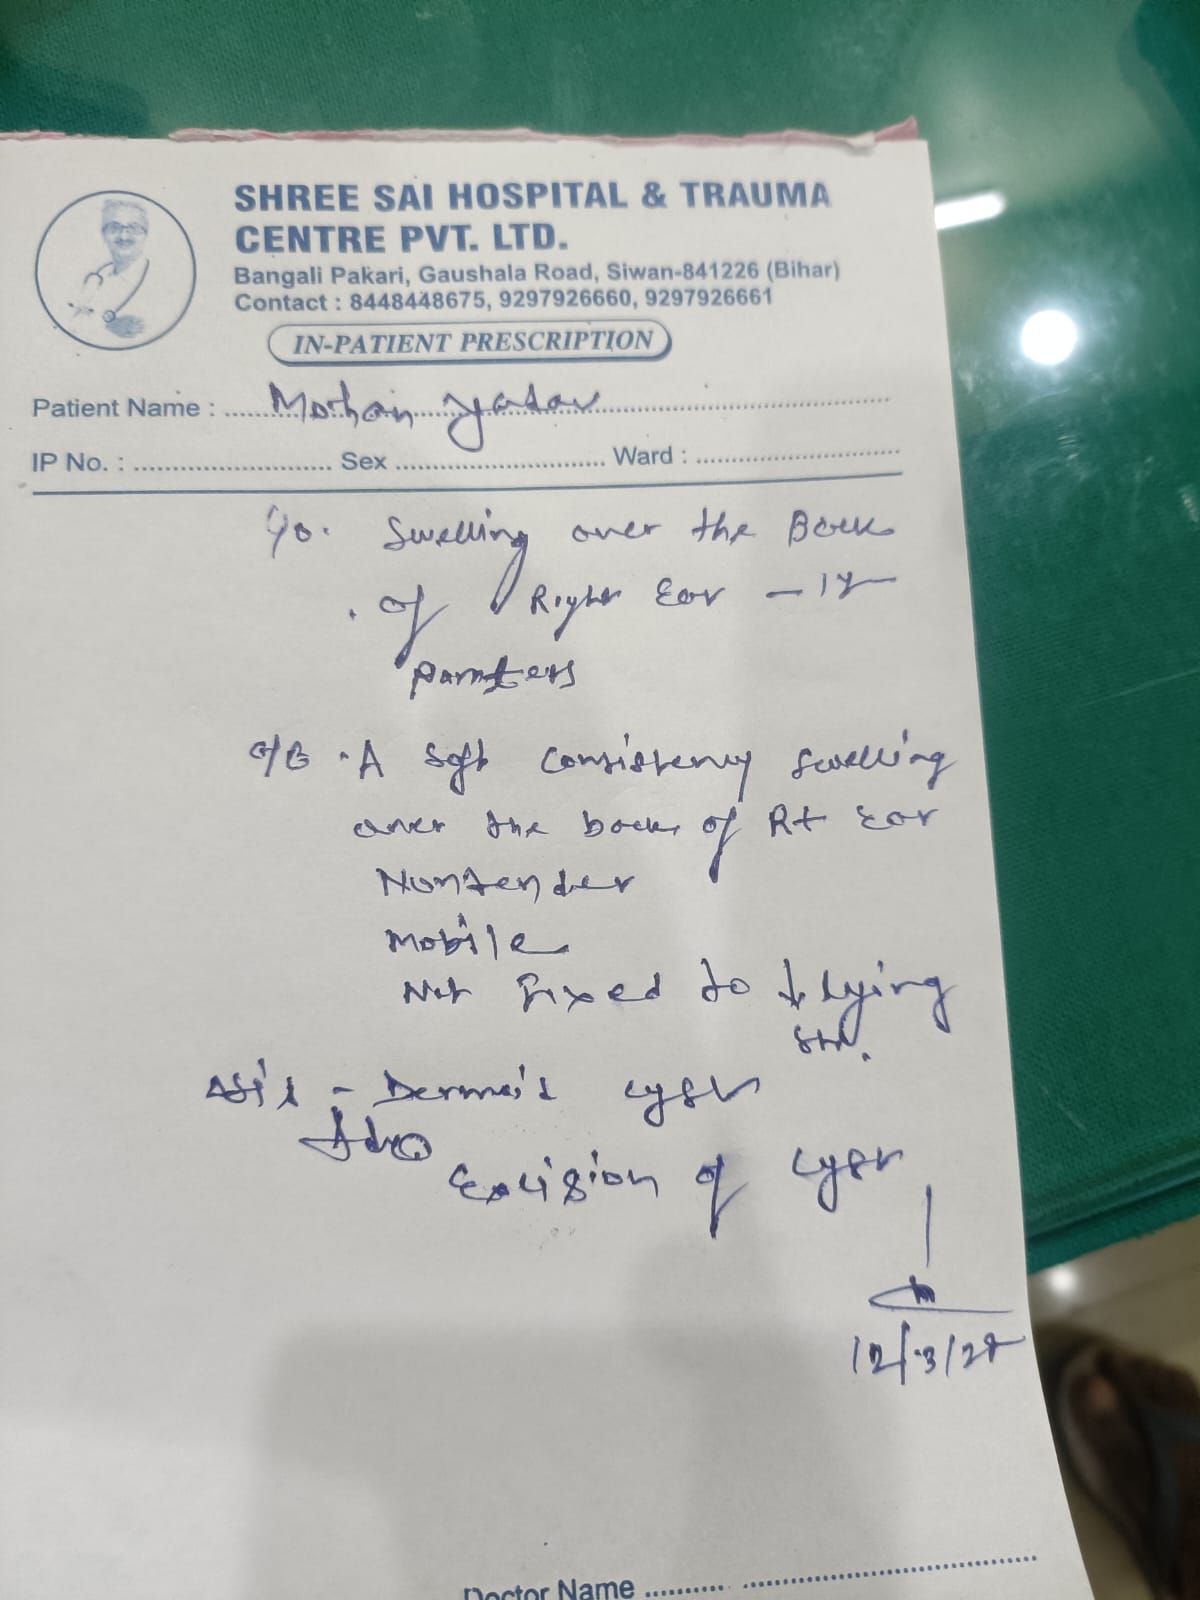 SHREE SAI HOSPITAL & TRAUMA
CENTRE PVT. LTD.
Bangali Pakari, Gaushala Road, Siwan-841226 (Bihar)
Contact : 8448448675, 9297926660, 9297926661
IN-PATIENT PRESCRIPTION
Patient Name : Mohan Yadav
IP No. : Sex Ward :
C/o. Swelling over the Back
of Right Ear - 1y
O/E A soft consistency swelling
over the back of Rt Ear
Nontender
Mobile
Not fixed to ↓lying
str.
Dermoid cyst
Adv
Excision of cyst
12/3/2
Doctor Name